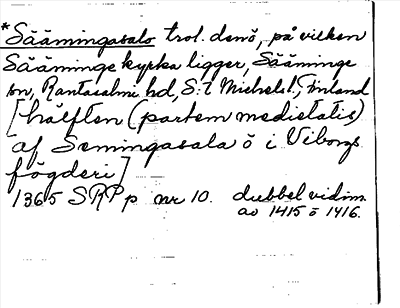 *Säämingasalo trol. densö, på vilken
Sääminge kyrka ligger, Sääminge
sn, Rantasalmi hd, S:t Michels l., Finland
[hälften (partem medietatis)
af Semingasala ö i Viborgs
fögderi]
1365 SRP p nr 10. dubbel vidim.
av 1415 o 1416.